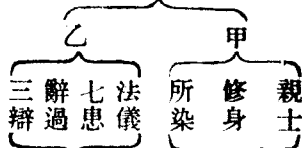 甲
親士
修身
所染
乙
法儀
七患
辭過
三辯